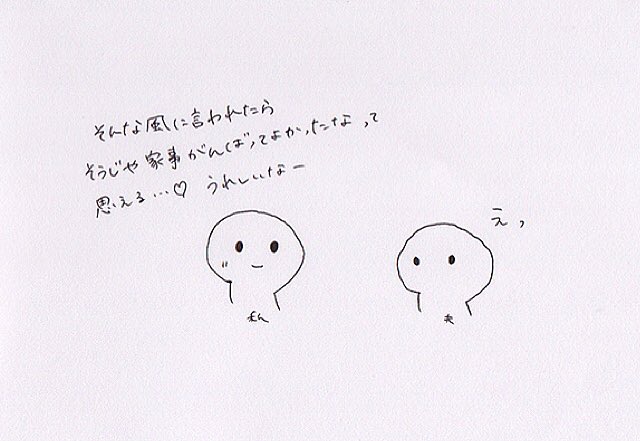 そんな風に言われたら
そうじや家事がんばってよかったなって
思える…♡ うれしいなー
えっ
夫